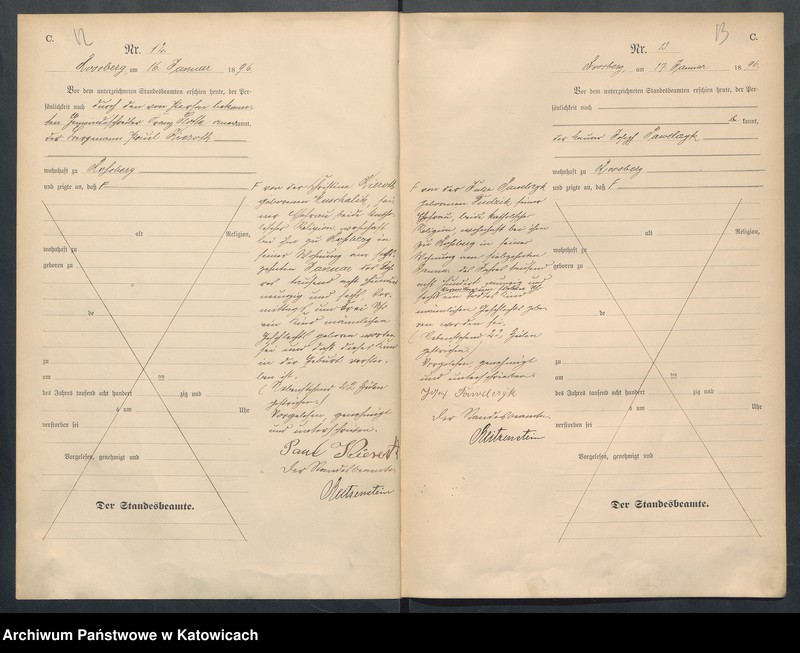 C.
12
Nr. 12
Rossberg am 16. Januar 1896
Vor dem unterzeichneten Standesbeamten erschien heute, der Per-
sönlichkeit nach durch den von Person bekann-
ten Gemeindeschreiber Franz anerkannt,
der Bergmann Paul
wohnhaft zu Roßberg
und zeigte an, daß F
alt Religion,
wohnhaft zu
geboren zu
de
zu
am ten
des Jahres tausend acht hundert zig und
um Uhr
verstorben sei
Vorgelesen, genehmigt und
Der Standesbeamte.
F von der
geborenen Kuschalik, sei-
ner Ehefrau, beide katho-
lischer Religion, wohnhaft
bei ihm zu Roßberg in
seiner Wohnung am sech-
zehnten Januar des Jah-
res tausend acht hundert
neunzig und sechs Vor-
mittags um drei Uhr
ein Kind männlichen
Geschlechts geboren worden
sei und daß dieses Kind
in der Geburt verstor-
ben ist.
(Nebenstehend 22 Zeilen
gestrichen.)
Vorgelesen, genehmigt
und unterschrieben.
Paul
Der Standesbeamte
Reitzenstein
13
C.
Nr. 13
Rossberg, am 17. Januar 1896
Vor dem unterzeichneten Standesbeamten erschien heute, der Per-
sönlichkeit nach
be kannt,
der Hauer Josef Pawelczyk
wohnhaft zu Rossberg
und zeigte an, daß F
alt Religion,
wohnhaft zu
geboren zu
de
zu
am ten
des Jahres tausend acht hundert zig und
um Uhr
verstorben sei
Vorgelesen, genehmigt und
Der Standesbeamte.
F von der Julie Pawelczyk
geborenen seiner
Ehefrau, beide katholischer
Religion, wohnhaft bei ihm
zu Rossberg in seiner
Wohnung am siebzehnten
Januar des Jahres tausend
acht hundert neunzig und
sechs
ein todtes Kind
männlichen Geschlechts gebo-
ren worden sei.
(Nebenstehend 22 Zeilen
gestrichen)
Vorgelesen, genehmigt
und unterschrieben
Josef Pawelczyk
Der Standesbeamte
Reitzenstein
Archiwum Państwowe w Katowicach